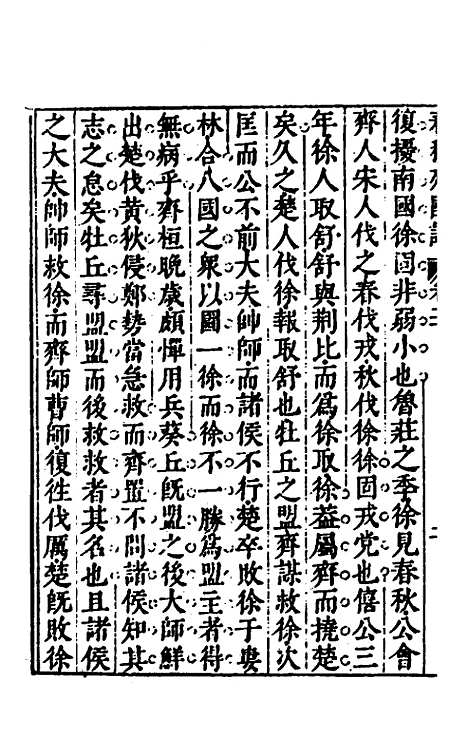 復擾南國徐固非弱小也魯莊之季徐見春秋公會
齊人宋人伐之春伐戎秋伐徐徐固戎党也僖公三
年徐人取舒舒與荆比而爲徐取徐葢屬齊而撓楚
矣久之楚人伐徐報取舒也牡丘之盟齊謀救徐次
匡而公不前大夫帥師而諸侯不行楚卒敗徐于婁
林合八國之衆以國一徐而徐不一勝爲盟主者得
無病乎齊桓晚歲頗憚用兵葵丘旣盟之後大師鮮
出楚伐黄狄侵鄭勢當急救而齊置不問諸侯知其
志之怠矣牡丘尋盟盟而後救救者其名也且諸侯
之大夫帥師救徐而齊師曹師復徃伐厲楚旣敗徐